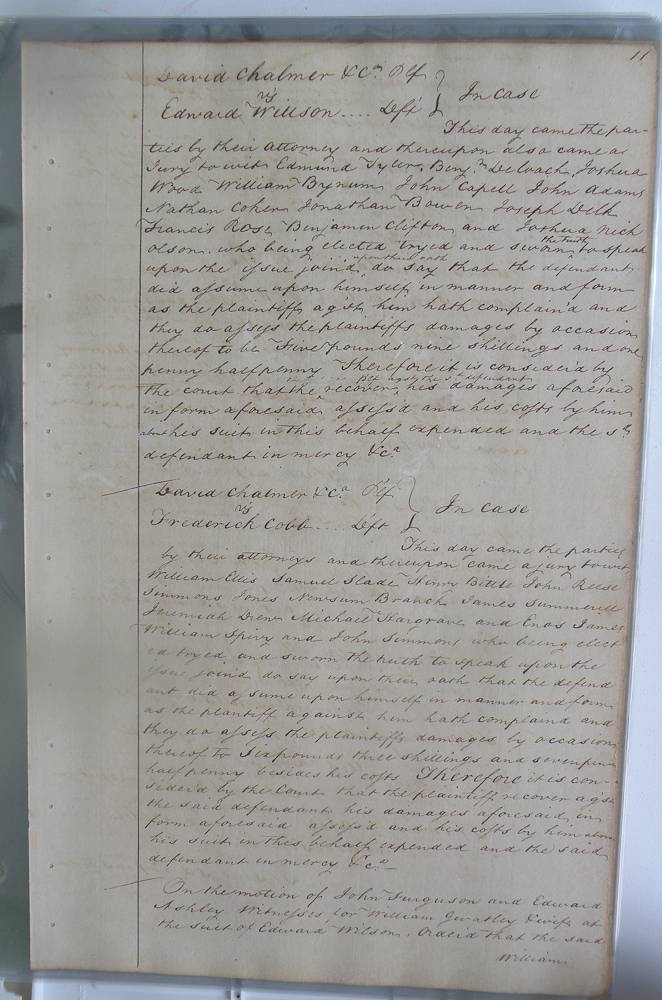 11
David Chalmer & Co. Plf
vs
In Case
Edward Willson .... Deft
This day came the par-
ties by their attorney and thereupon also came a
Jury to wit Edmund Tyler, Benj.n Deloach, Joshua
Wood William Bynum John Capell John Adams
Nathan Coker Jonathan Bowen Joseph Delk
Francis Rose Benjamin Clifton and Joshua Nich
olson. who being elected tryed and sworn the truth to speak
upon the issue joind, upon their oath do say that the defendant
did assume upon himself in manner and form
as the plaintiff agst him hath complain'd and
they do assess the plaintiffs damages by occasion
thereof to be Five pounds nine shillings and one
penny halfpenny Therefore it is consider'd by
the court that the recover agst the sd defendant his damages aforesaid
in form aforesaid assess'd and his costs by him
about his suit in this behalf expended and the sd
defendant in mercy &c.a
David Chalmer & C.a Plf
vs
In Case
Frederick Cobb .... Deft
This day came the parties
by their attorneys and thereupon came a jury to wit
William Ellis Samuel Slade Henry Bittle John Reese
Simmons Jones Newsum Branch James Summerell
Jeremiah Drew Michael Hargrave and Enos James
William Spivy and John Simmons who being elect
ed tryed and sworn the truth to speak upon the
issue joind do say upon their oath that the defend
ant did assume upon himself in manner and form
as the plantiff against him hath complaind and
they do assess the plaintiffs damages by occasion
thereof to Six pounds three shillings and sevenpence
halfpenny besides his costs Therefore it is con-
sider'd by the Court that the plaintiff recover agst
the said defendant his damages aforesaid in
form aforesaid assess'd and his costs by him about
his suit in this behalf expended and the said
defendant in mercy &c.a
On the motion of John Furguson and Edward
Ashley Witnesses for William Gwatley & wife at
the suit of Edward Wilson. Order'd that the said
William